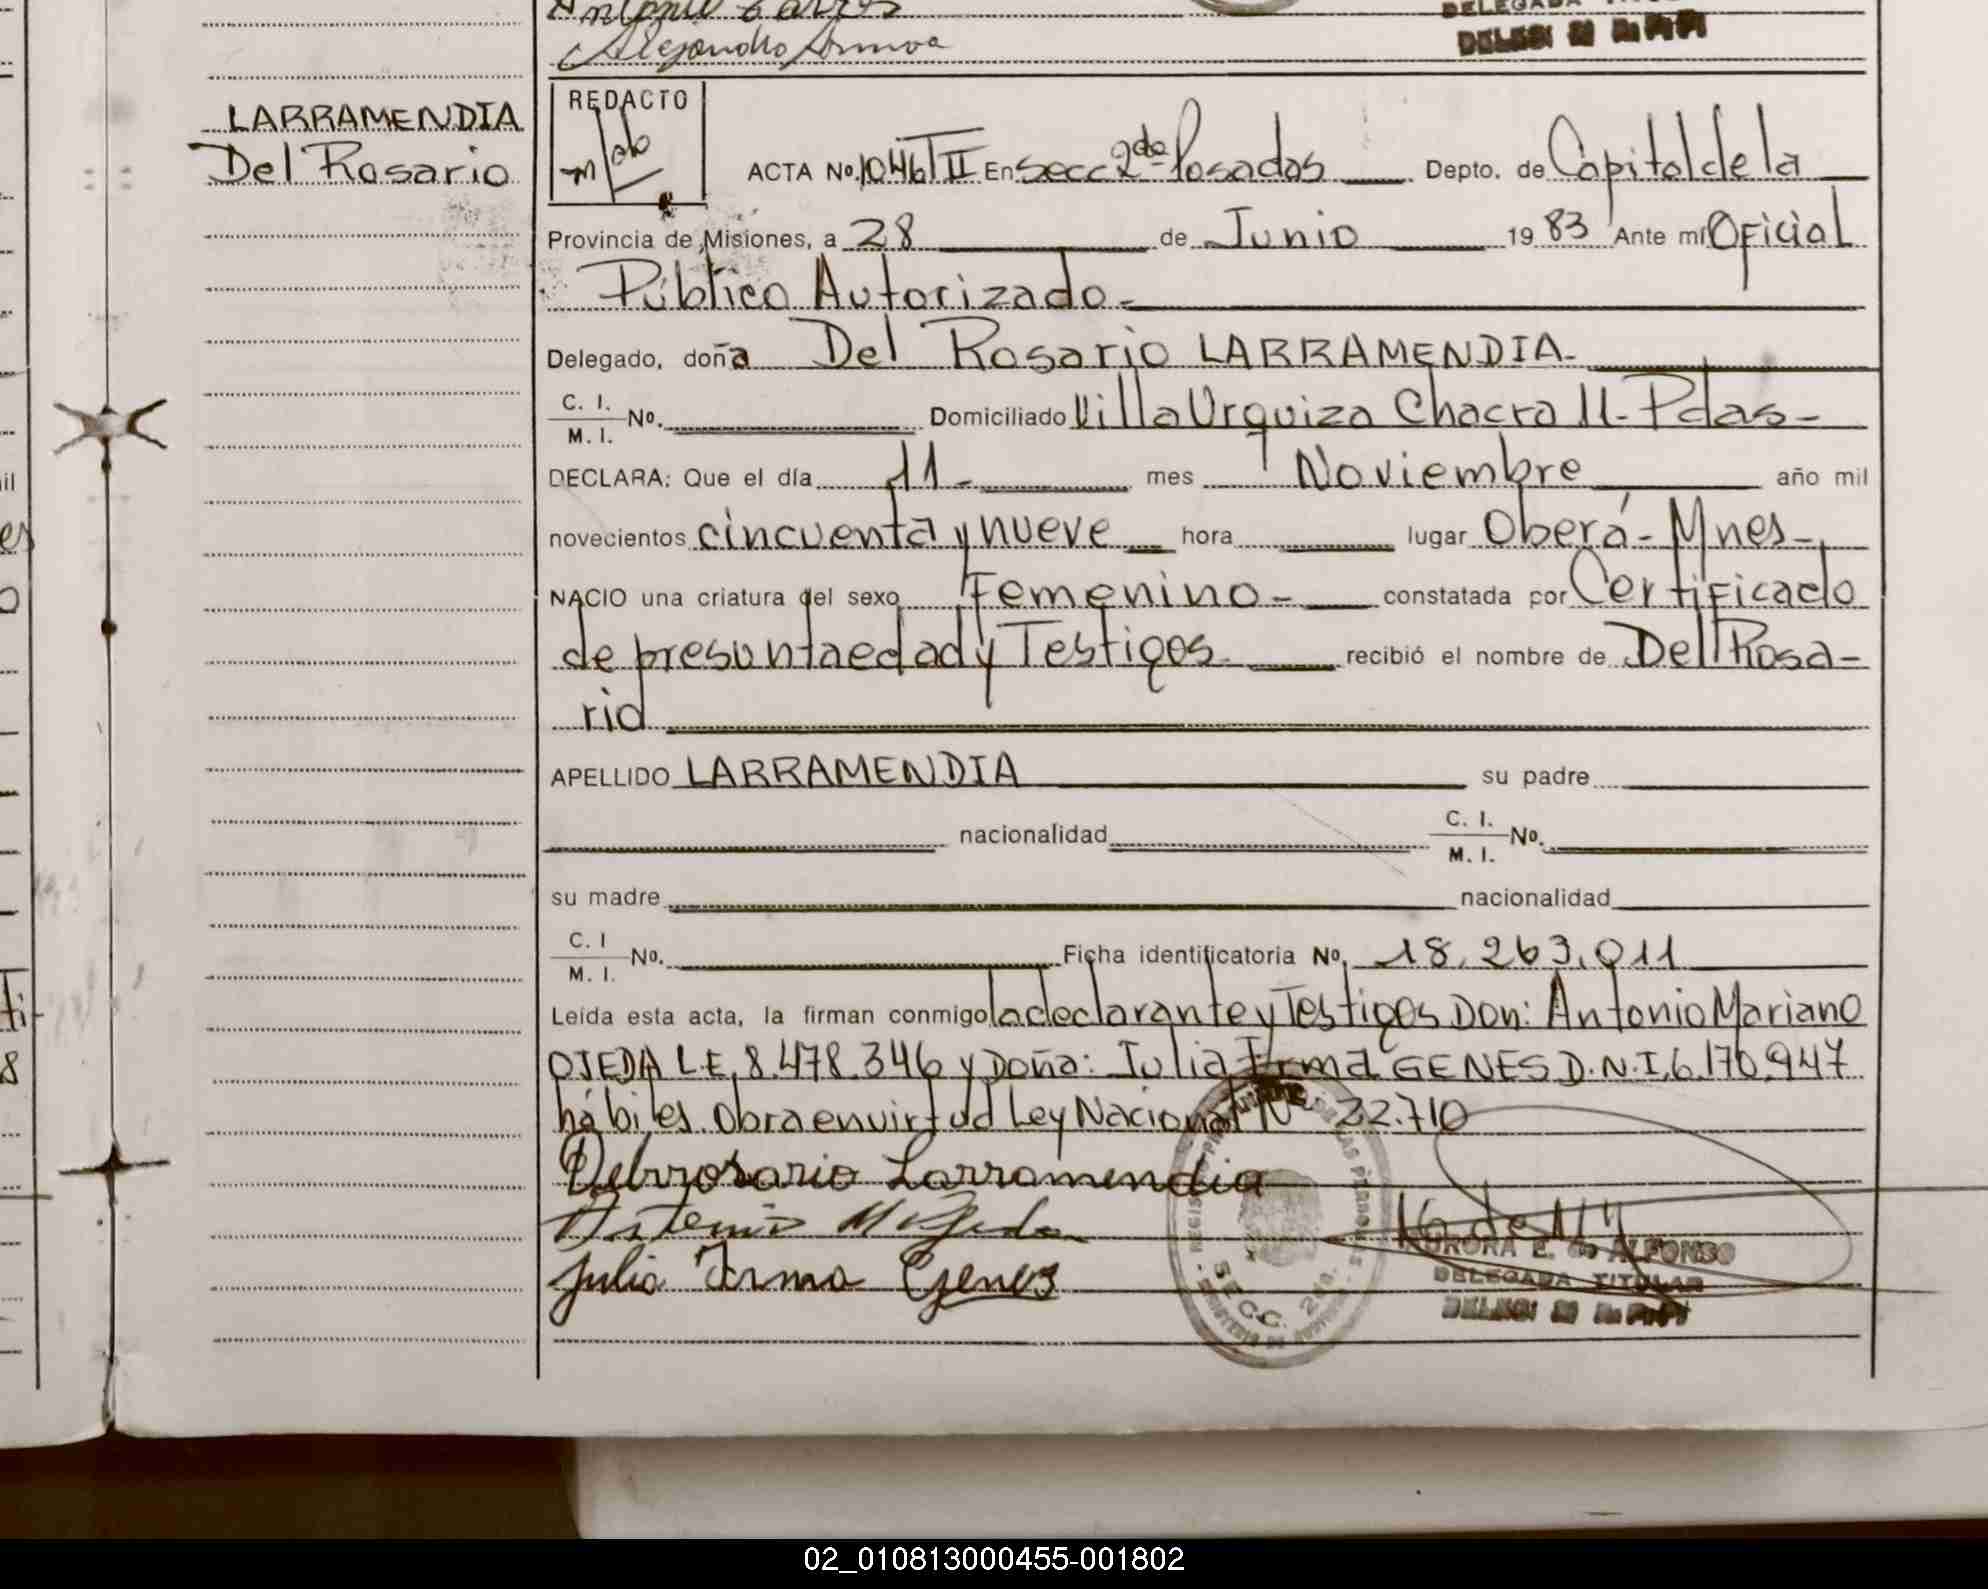 Alejandro
DELEGADA TITULAR
LARRAMENDIA
Del Rosario
REDACTO
ACTA No. 1046 T II En Secc 2da Posadas Depto. de Capital de la
Provincia de Misiones, a 28 de Junio 1983 Ante mí Oficial
Público Autorizado-
Delegado, doña Del Rosario LARRAMENDIA-
C. I.
M. I. No. Domiciliado Villa Urquiza Chacra 11- Pdas-
DECLARA: Que el día 11- mes Noviembre año mil
novecientos cincuenta y nueve hora lugar Oberá- Mnes-
NACIO una criatura del sexo Femenino- constatada por Certificado
de presunta edad y Testigos recibió el nombre de Del Rosa-
rio
APELLIDO LARRAMENDIA su padre
nacionalidad C. I.
M. I. No.
su madre nacionalidad
C. I
M. I. No. Ficha identificatoria No. 18.263.011
Leída esta acta, la firman conmigo la declarante y Testigos Don: Antonio Mariano
OJEDA L.E. 8.478.346 y Doña: Julia Irma GENES D.N.I. 6.170.947
hábiles. Obra en virtud Ley Nacional Nº 22.710
Delrrosario Larramendia
Antonio M Ojeda
Julia Irma Genes
SECC. 2da.
AURORA E. de ALFONSO
DELEGADA TITULAR
02_010813000455-001802